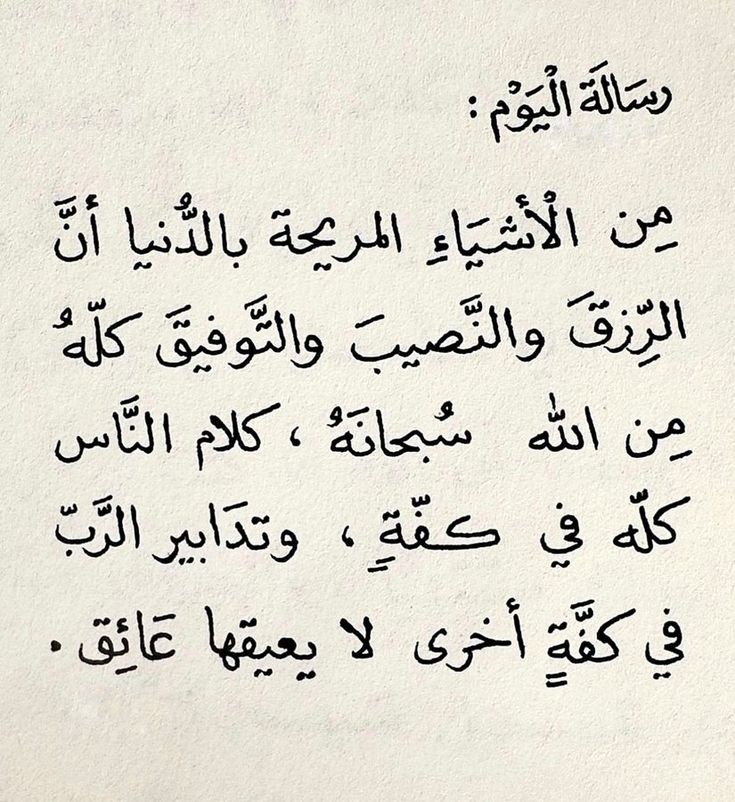 رسَالَة الْيَوْم :
مِن الْأشيَاءِ المريحة بالدُّنيا أنَّ
الرِّزقَ والنَّصيبَ والتَّوفيقَ كلّهُ
مِن الله سُبحانَهُ ، كلام النَّاس
كلّه في كفّةٍ ، وتدَابير الرَّبّ
في كفَّةٍ أخرى لا يعيقها عَائِق .